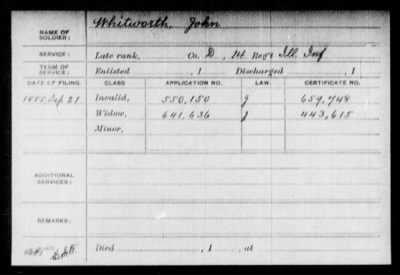 NAME OF SOLDIER: Whitworth, John
SERVICE: Late rank, Co. D, Reg't Ill. Inf.
TERM OF SERVICE: Enlisted , 1 Discharged , 1
DATE OF FILING. CLASS APPLICATION NO. LAW. CERTIFICATE NO.
Sep 21 Invalid, 550,150 J 659,748
Widow, 641,636 J 443,615
Minor,
ADDITIONAL SERVICES:
REMARKS:
Died , 1 , at